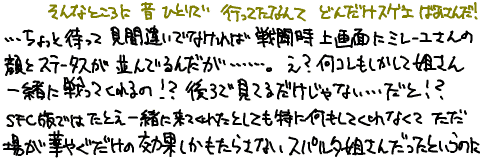 そんなところに 昔 ひとりで 行ってたなんて どんだけスゲエ ばあさんだ!
…ちょっと待って 見間違いでなければ 戦闘時上画面にミレーユさんの
顔とステータスが 並んでいるんだが……。え?何コレもしかして姐さん
一緒に戦ってくれるの!?後ろで見てるだけじゃない…だと!?
SFC版では たとえ一緒に来てくれたとしても特に何もしてくれなくて ただ
場が華やぐだけの効果しかもたらさない スパルタ姐さんだったというのに